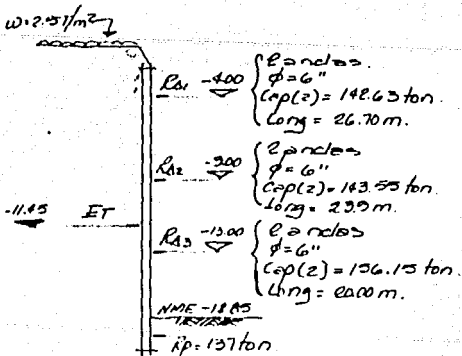 ω=2.5T/m²
RΔ1 -4.00
2 anclas.
φ=6"
Cap(2)=142.63 ton.
Long=26.70m.
RΔ2 -9.00
2 anclas
φ=6"
Cap(2)=143.55 ton.
Long=23.9m.
-11.45 ET
RΔ3 -13.00
2 anclas
φ=6"
Cap(2)=156.15 ton.
Long=20.00m.
NME -18.85
Rp=137ton